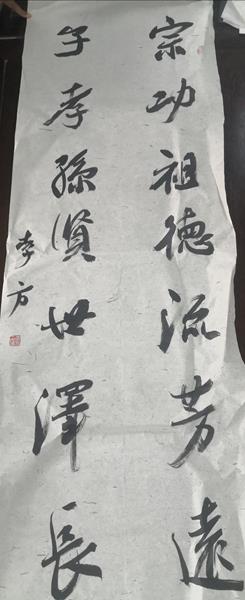 宗功祖德流芳遠
子孝孫賢世澤長
李方